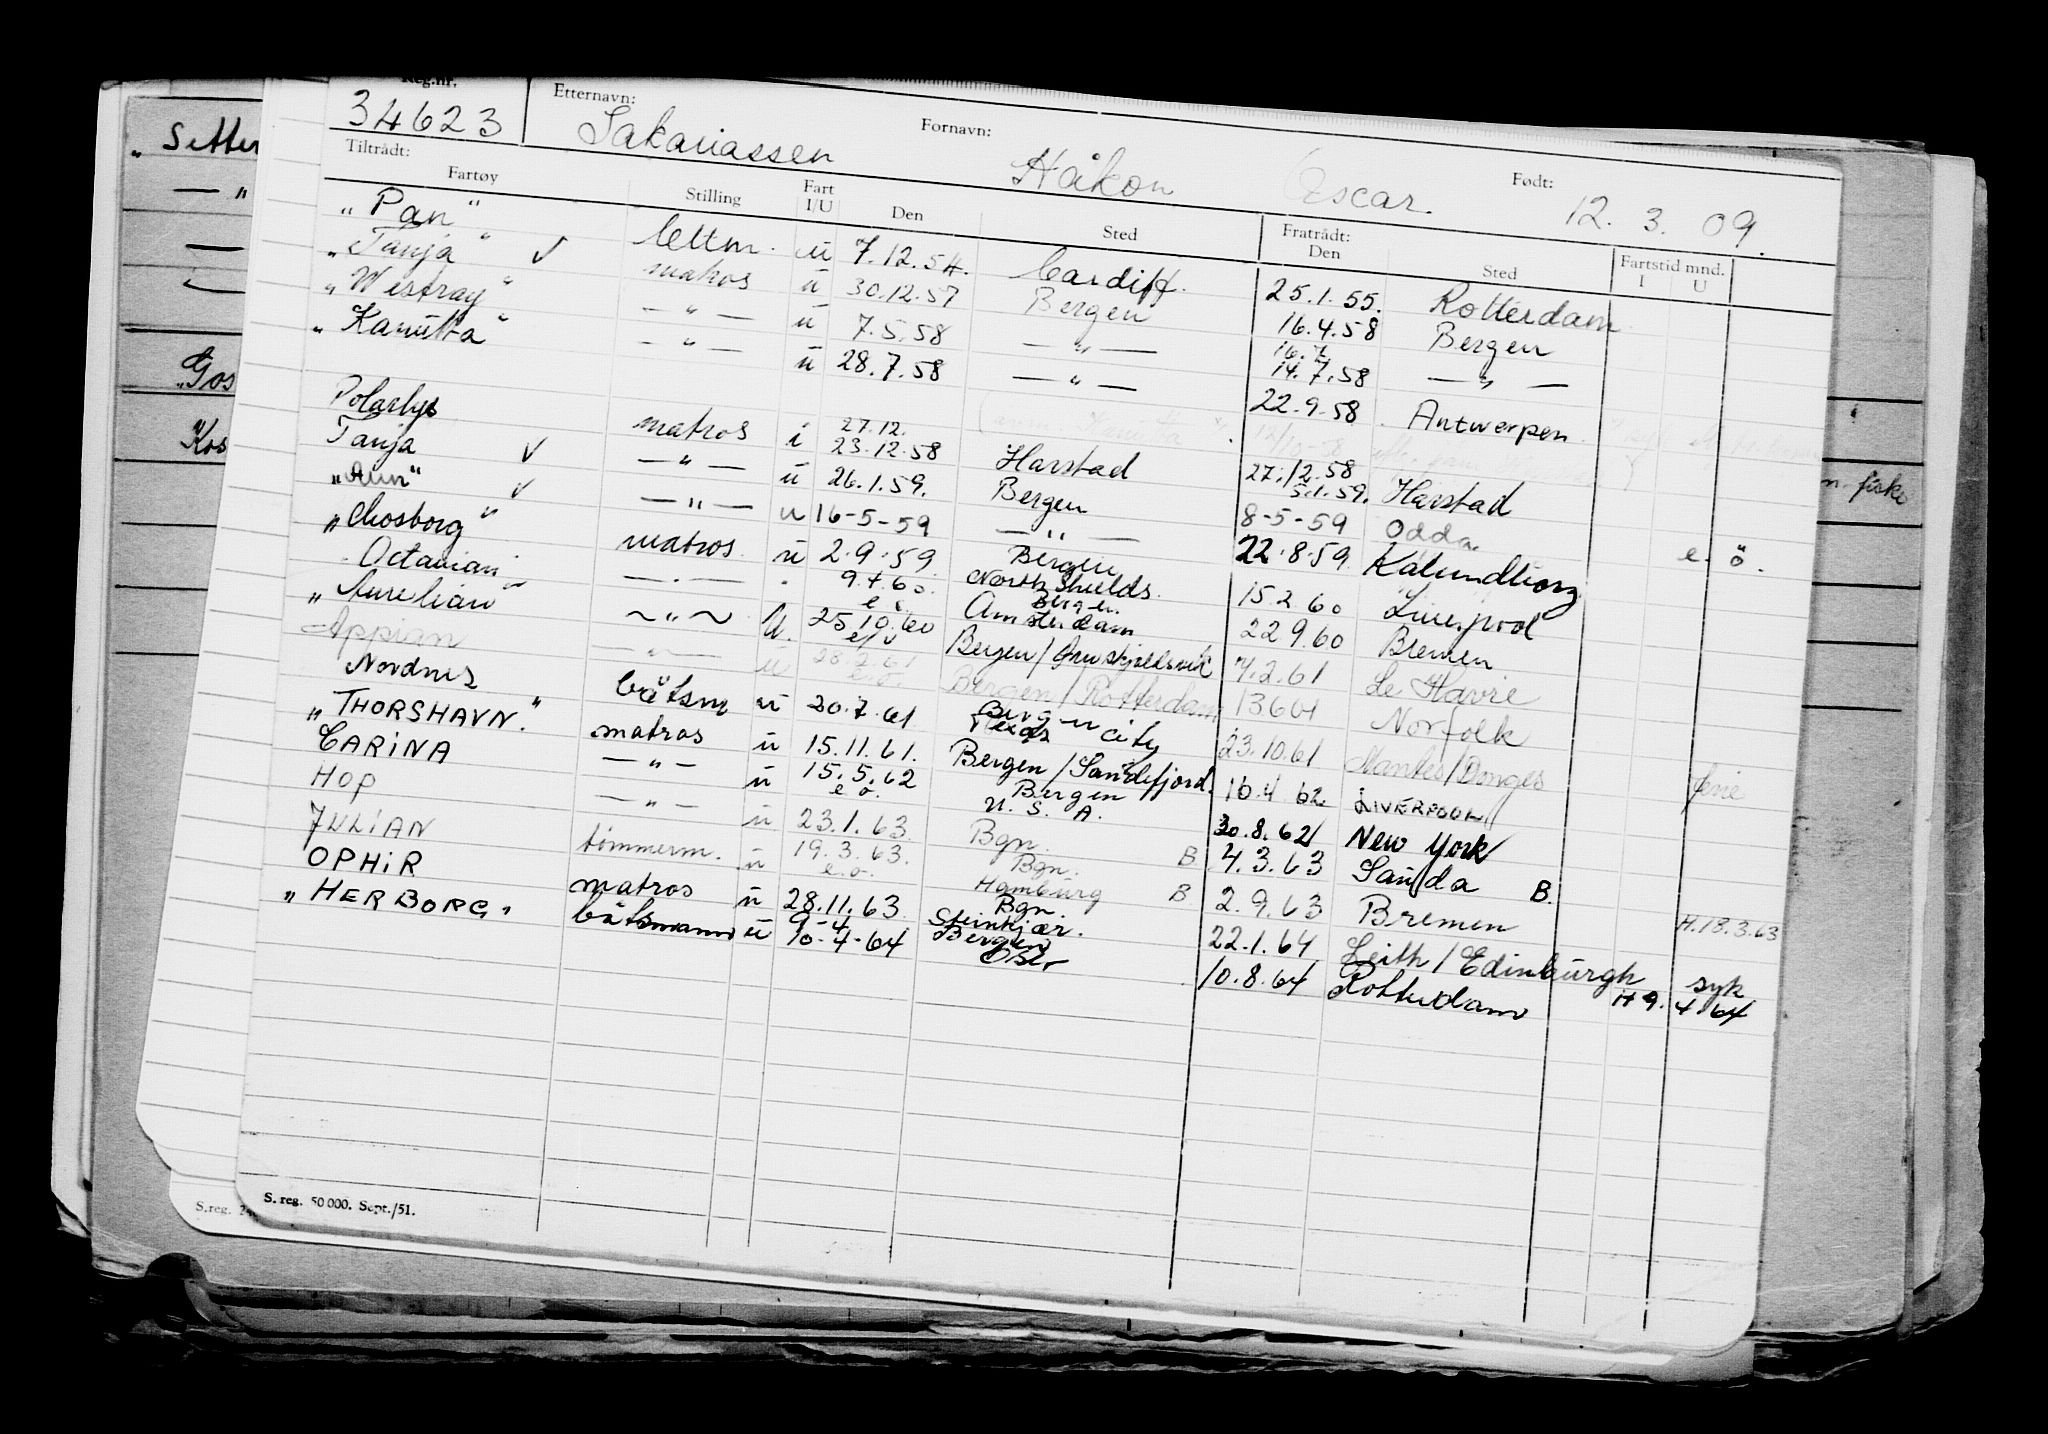 Reg.nr. Etternavn: Fornavn: Født:
34623 Sakariassen Håkon Oscar. 12. 3. 09.
Tiltrådt: Fratrådt: Fartstid mnd.
Fartøy Stilling Fart I/U Den Sted Den Sted I U
"Pan" lettm. u 7.12.54. Cardiff. 25.1.55. Rotterdam
"Tanja" √ matros u 30.12.57 Bergen 16.4.58 Bergen
"Westray" — " — u 7.5.58 — " — 16.7. 14.7.58 — " —
"Kanutta" — " — u 28.7.58 — " — 22.9.58 Antwerpen
Polarlys matros i 27.12. 23.12.58 Harstad 27.12.58 Harstad
Tanja √ — " — u 26.1.59. Bergen 5.1.59. 8-5-59 Odda
"Ann" √ — " — u 16-5-59 — " — 22.8.59 Kalundborg e. ö.
"Chosborg" matros u 2.9.59 Bergen North Shields. 15.2.60 Liverpool
Octavian — " — 9.4.60. e.o. Bergen Amsterdam 22.9.60 Bremen
"Aurelian" ~ " ~ u. 25.10.60 Bergen/ 7.2.61 Le Havre
Appian — " — u 28.2.61 e.o. Bergen/Rotterdam 13.6.61 Norfolk
Nordnes båtsm u 20.7.61 Bergen Texas city 23.10.61 Nantes/Donges ferie
"THORSHAVN." matros u 15.11.61. Bergen/Sandefjord. 16.4.62 LIVERPOOL
CARINA — " — u 15.5.62 e.o. Bergen U.S.A. 30.8.62 New York
HOP — " — u 23.1.63. Bgn. B 4.3.63 Sauda B.
JULIAN tømmerm. u 19.3.63. e.o. Bgn. Hamburg B 2.9.63 Bremen H.18.3.63
OPHIR matros u 28.11.63 Bgn. 22.1.64 Leith/Edinburgh syk
"HERBORG" båtsmann u 9-4 10-4-64 Steinkjær. Bergen Oslo 10.8.64 Rotterdam H 9.4.64
S. reg. 50 000. Sept./51.
"Setter
— "
"Gos
"Kos
n. fiske
S.reg.